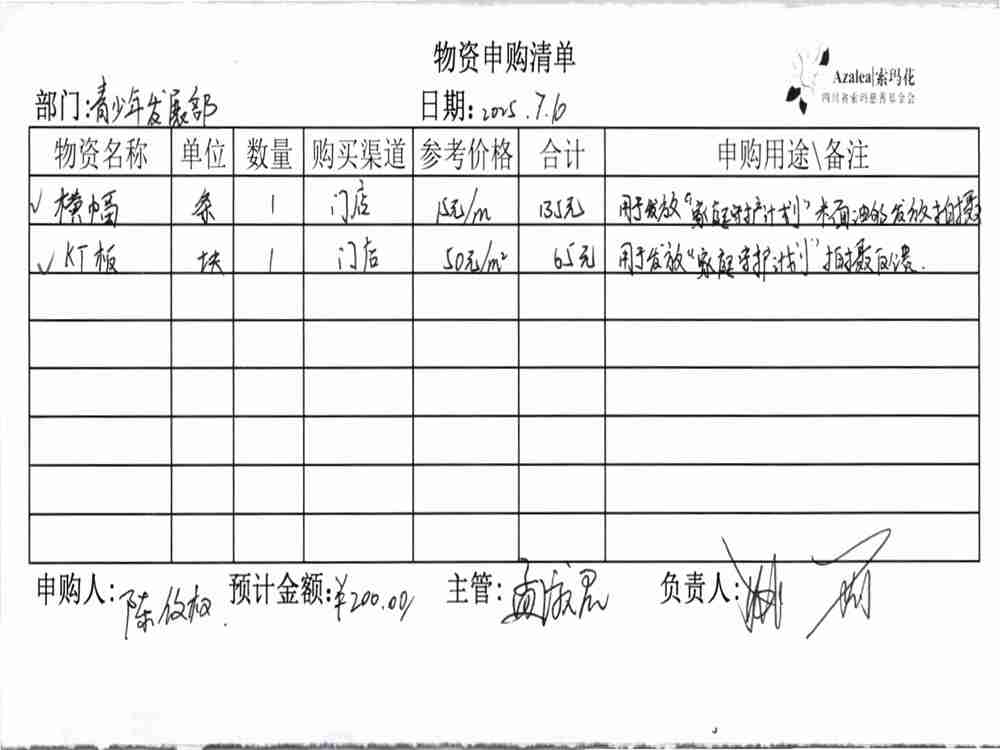 物资申购清单
Azalea|索玛花
四川省索玛慈善基金会
部门:青少年发展部 日期:2025.7.6
物资名称 单位 数量 购买渠道 参考价格 合计 申购用途\备注
√ 横幅 条 1 门店 15元/m 135元 用于发放"家庭守护计划"米面油的发放拍摄
√ KT板 块 1 门店 50元/m² 65元 用于发放"家庭守护计划"拍摄反馈.
申购人: 陈 预计金额:¥200.00 主管: 孟 负责人: